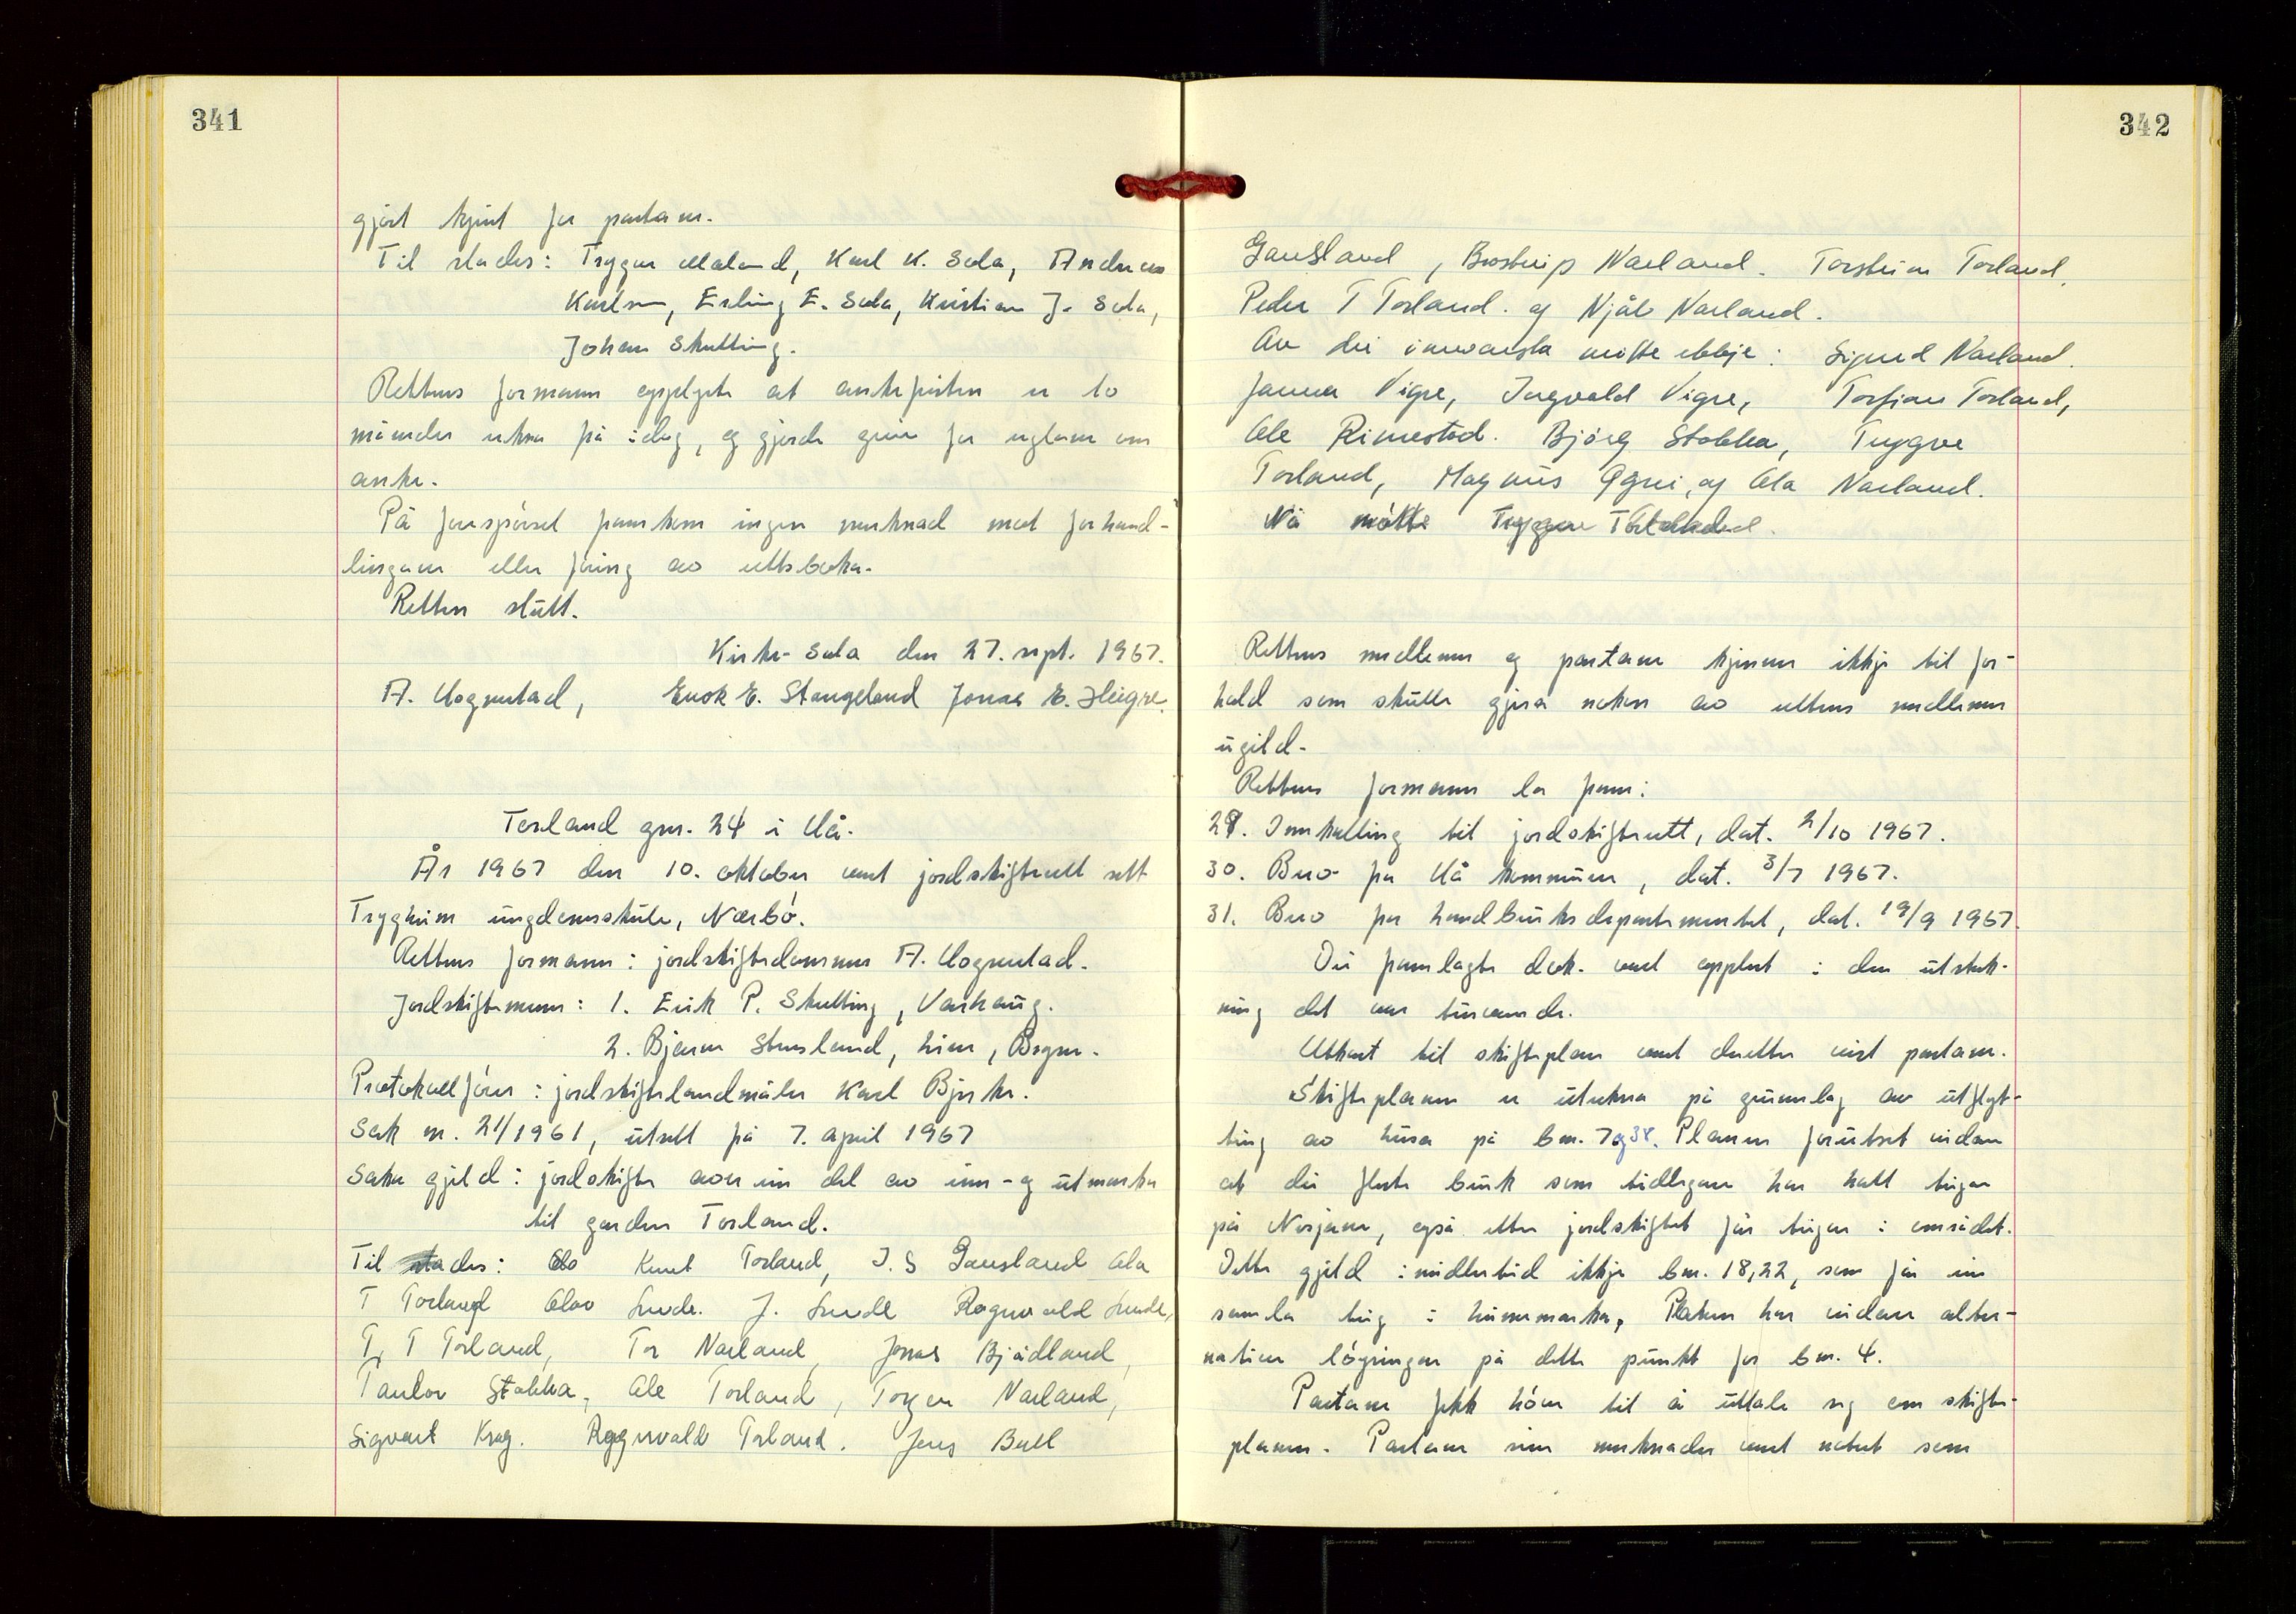 341
gjort kjent for partane.
Til stades: Trygve Maland, Karl K. Sola, Andreas
Karlsen, Erling E. Sola, Kristian J. Sola,
Johan Skretting.
Rettens formann opplyste at ankefristen er to
månader rekna på idag, og gjorde greie for reglane om
anke.
På førespørsel framkom ingen merknad mot forhand-
lingane eller føring av rettsboka.
Retten slutt.
Kirke-Sola den 27. sept. 1967.
A. Rognstad, Enok E. Stangeland Jonas E. Helgre.
Torland gnr. 24 i Hå.
År 1967 den 10. oktober vart jordskifterett sett
Tryggheim ungdomsskule, Nærbø.
Rettens formann: jordskiftedommer A. Rognstad.
Jordskiftemenn: 1. Erik P. Skretting, Varhaug.
2. Bjarne Stensland, Lime, Bryne.
Protokollfører: jordskiftelandmåler Karl Bjerke.
Sak nr. 21/1961, utsett på 7. april 1967
Saka gjeld: jordskifte over ein del av inn- og utmarka
til garden Torland.
Til stades: Olo Knut Torland, I. S Gausland Ola
T Torland Olav Lende. J. Lende Ragnvald Lende,
T. T Torland, Tor Narland, Jonas Bjådland,
Taulov Stokka, Ole Torland, Torger Narland,
Sigvart Krog. Ragnvald Torland. Jens Bull
342
Gausland, Brostrup Narland. Torstein Torland,
Peder T Torland. og Njål Narland.
Av dei innvarsla møtte ikkje: Sigurd Narland.
Janna Vigre, Ingvald Vigre, Torfinn Torland,
Ole Rimestad. Bjørg Stokka, Trygve
Torland, Magnus Ognei, og Ola Narland.
Nå møtte Trygve Torland.
Rettens medlemer og partane kjenner ikkje til for-
hold som skulle gjera nokon av rettens medlemer
ugild.
Rettens formann la fram:
29. Innkalling til jordskifterett, dat. 2/10 1967.
30. Brev fra Hå kommune, dat. 3/7 1967.
31. Brev fra landbruksdepartementet, dat. 19/9 1967.
Dei framlagte dok. vart opplest i den utstrek-
ning det var turvande.
Utkast til skifteplan vart deretter vist partane.
Skifteplanen er utrekna på grunnlag av utflyt-
ting av husa på bnr. 7 og 38. Planen forutset vidare
at dei fleste bruk som tidlegare har hatt teigar
på Nesjane, også etter jordskiftet får teigar i området.
Dette gjeld imidlertid ikkje bnr. 18, 22, som får ein
samla teig i heimemarka, Planen har vidare alter-
native løysingar på dette punkt for bnr. 4.
Partane fekk høve til å uttale seg om skifte-
planen. Partane sine merknader vart notert som